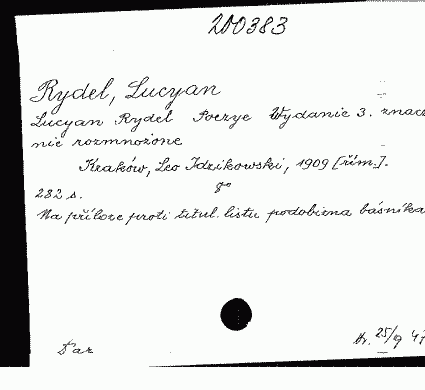 200383
Rydel, Lucyan
Lucyan Rydel Poezye Wydanie 3. znacz
nie rozmnożone
Kraków, Leo Idzikowski, 1909 [řím.].
8°
282 s.
Na příloze proti titul. listu podobizna básníka
Dar 25/9